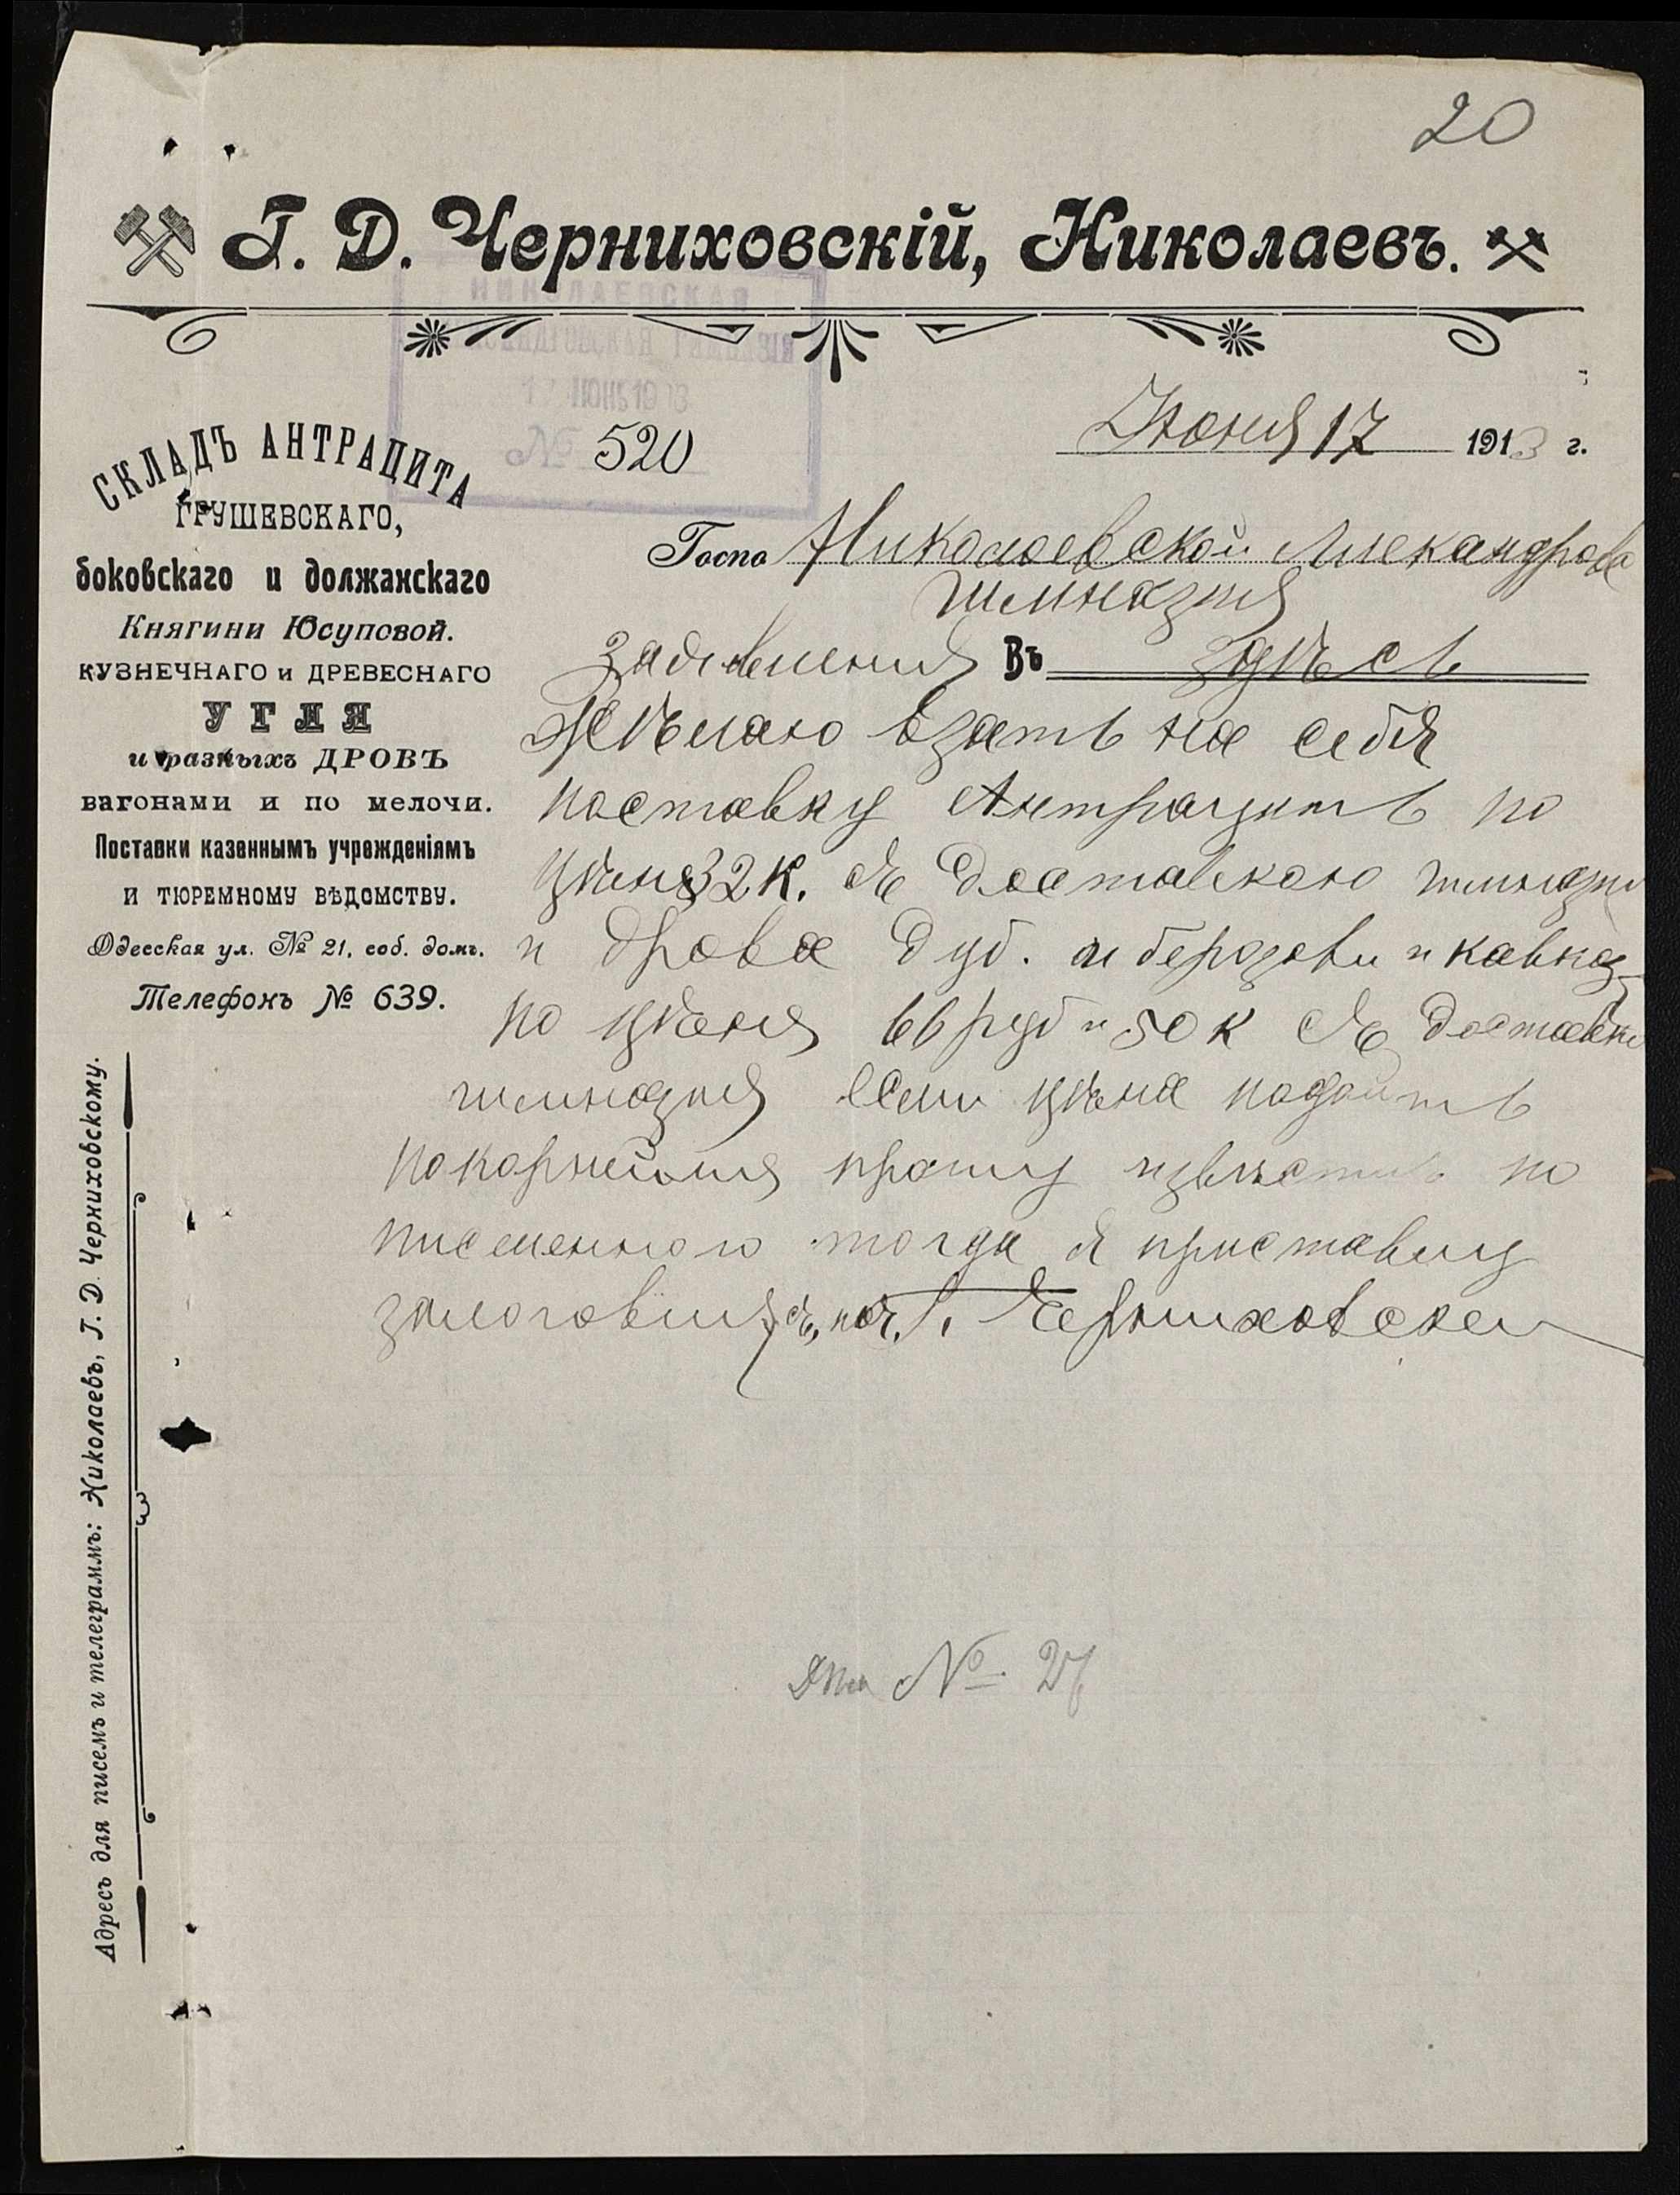 20
Г. Д. Черниховскій, Николаевъ.
НИКОЛАЕВСКАЯ
ГИМНАЗІЯ
17 ІЮНЬ 1913
№ 520
Июня 17 1913 г.
СКЛАДЪ АНТРАЦИТА
ГРУШЕВСКАГО,
боковскаго и должанскаго
Княгини Юсуповой.
КУЗНЕЧНАГО и ДРЕВЕСНАГО
УГЛЯ
и разныхъ ДРОВЪ
вагонами и по мелочи.
Поставки казеннымъ учрежденіямъ
И ТЮРЕМНОМУ ВѢДОМСТВУ.
Одесская ул. № 21, соб. домъ.
Телефонъ № 639.
Адресъ для писемъ и телеграммъ: Николаевъ, Г. Д. Черниховскому.
Госпо Николаевской Александров
гимназия
заевления Въ здѣсь
Жѣлаю взять на себя
поставку Антрацить по
цѣня 32 к. съ Доставкою гимнази
и дрова дуб. и берозови и кавказ
по цѣня 66 руб и 50 к съ доставк
гимназия если цѣна подоить
покорнейшя прошу извѣстить по
писменного тогда я приставлу
залоговия съ поч. Г. Черниховскеи
№ 27